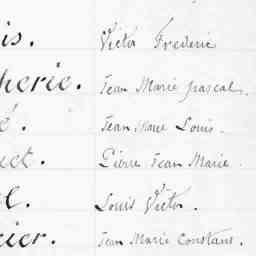 is. Victor Frederic
herie. Jean Marie pascal.
é. Jean Marie Louis.
uet. Pierre Jean Marie.
l. Louis Victor.
rier. Jean Marie Constant.